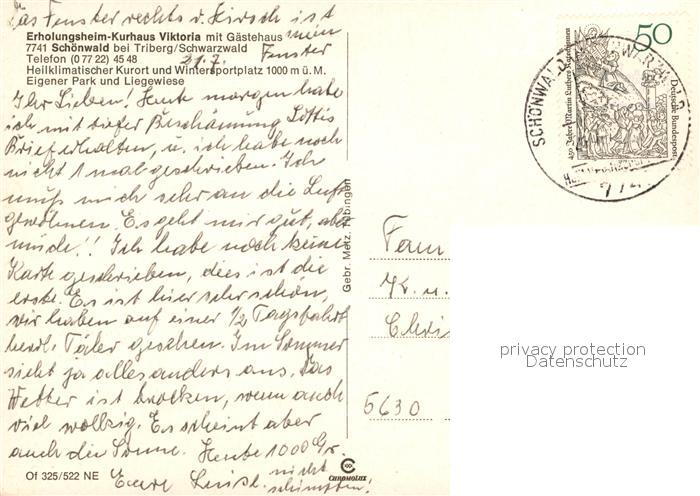 Das Fenster rechts v. Kirsch ist
mein
Fenster
Erholungsheim-Kurhaus Viktoria mit Gästehaus
7741 Schönwald bei Triberg/Schwarzwald
Telefon (0 77 22) 45 48
21.7.
Heilklimatischer Kurort und Wintersportplatz 1000 m ü. M.
Eigener Park und Liegewiese
Ihr Lieben! Heute morgen habe
ich mit tiefer Beschämung Lottis
Brief erhalten, u. ich habe noch
nicht 1 mal geschrieben. Ich
muß mich sehr an die Luft
gewöhnen. Es geht mir gut, aber
müde!! Ich habe noch keine
Karte geschrieben, dies ist die
erste. Es ist hier sehr schön,
wir haben auf einer 1/2 Tagsfahrt
herrl. Täler gesehen. Im Sommer
sieht ja alles anders aus. Das
Wetter ist trocken, wenn auch
viel wolkig. Es scheint aber
auch die Sonne. Heute 1000 Gr.
Eure Luise. nicht
schimpfen!
Of 325/522 NE
Gebr. Metz, Tübingen
CHROMOLUX
50
Deutsche Bundespost
450 Jahre Martin Luthers Katechismen
SCHÖNWALD
Fam
K. u.
Chri
5630
privacy protection
Datenschutz